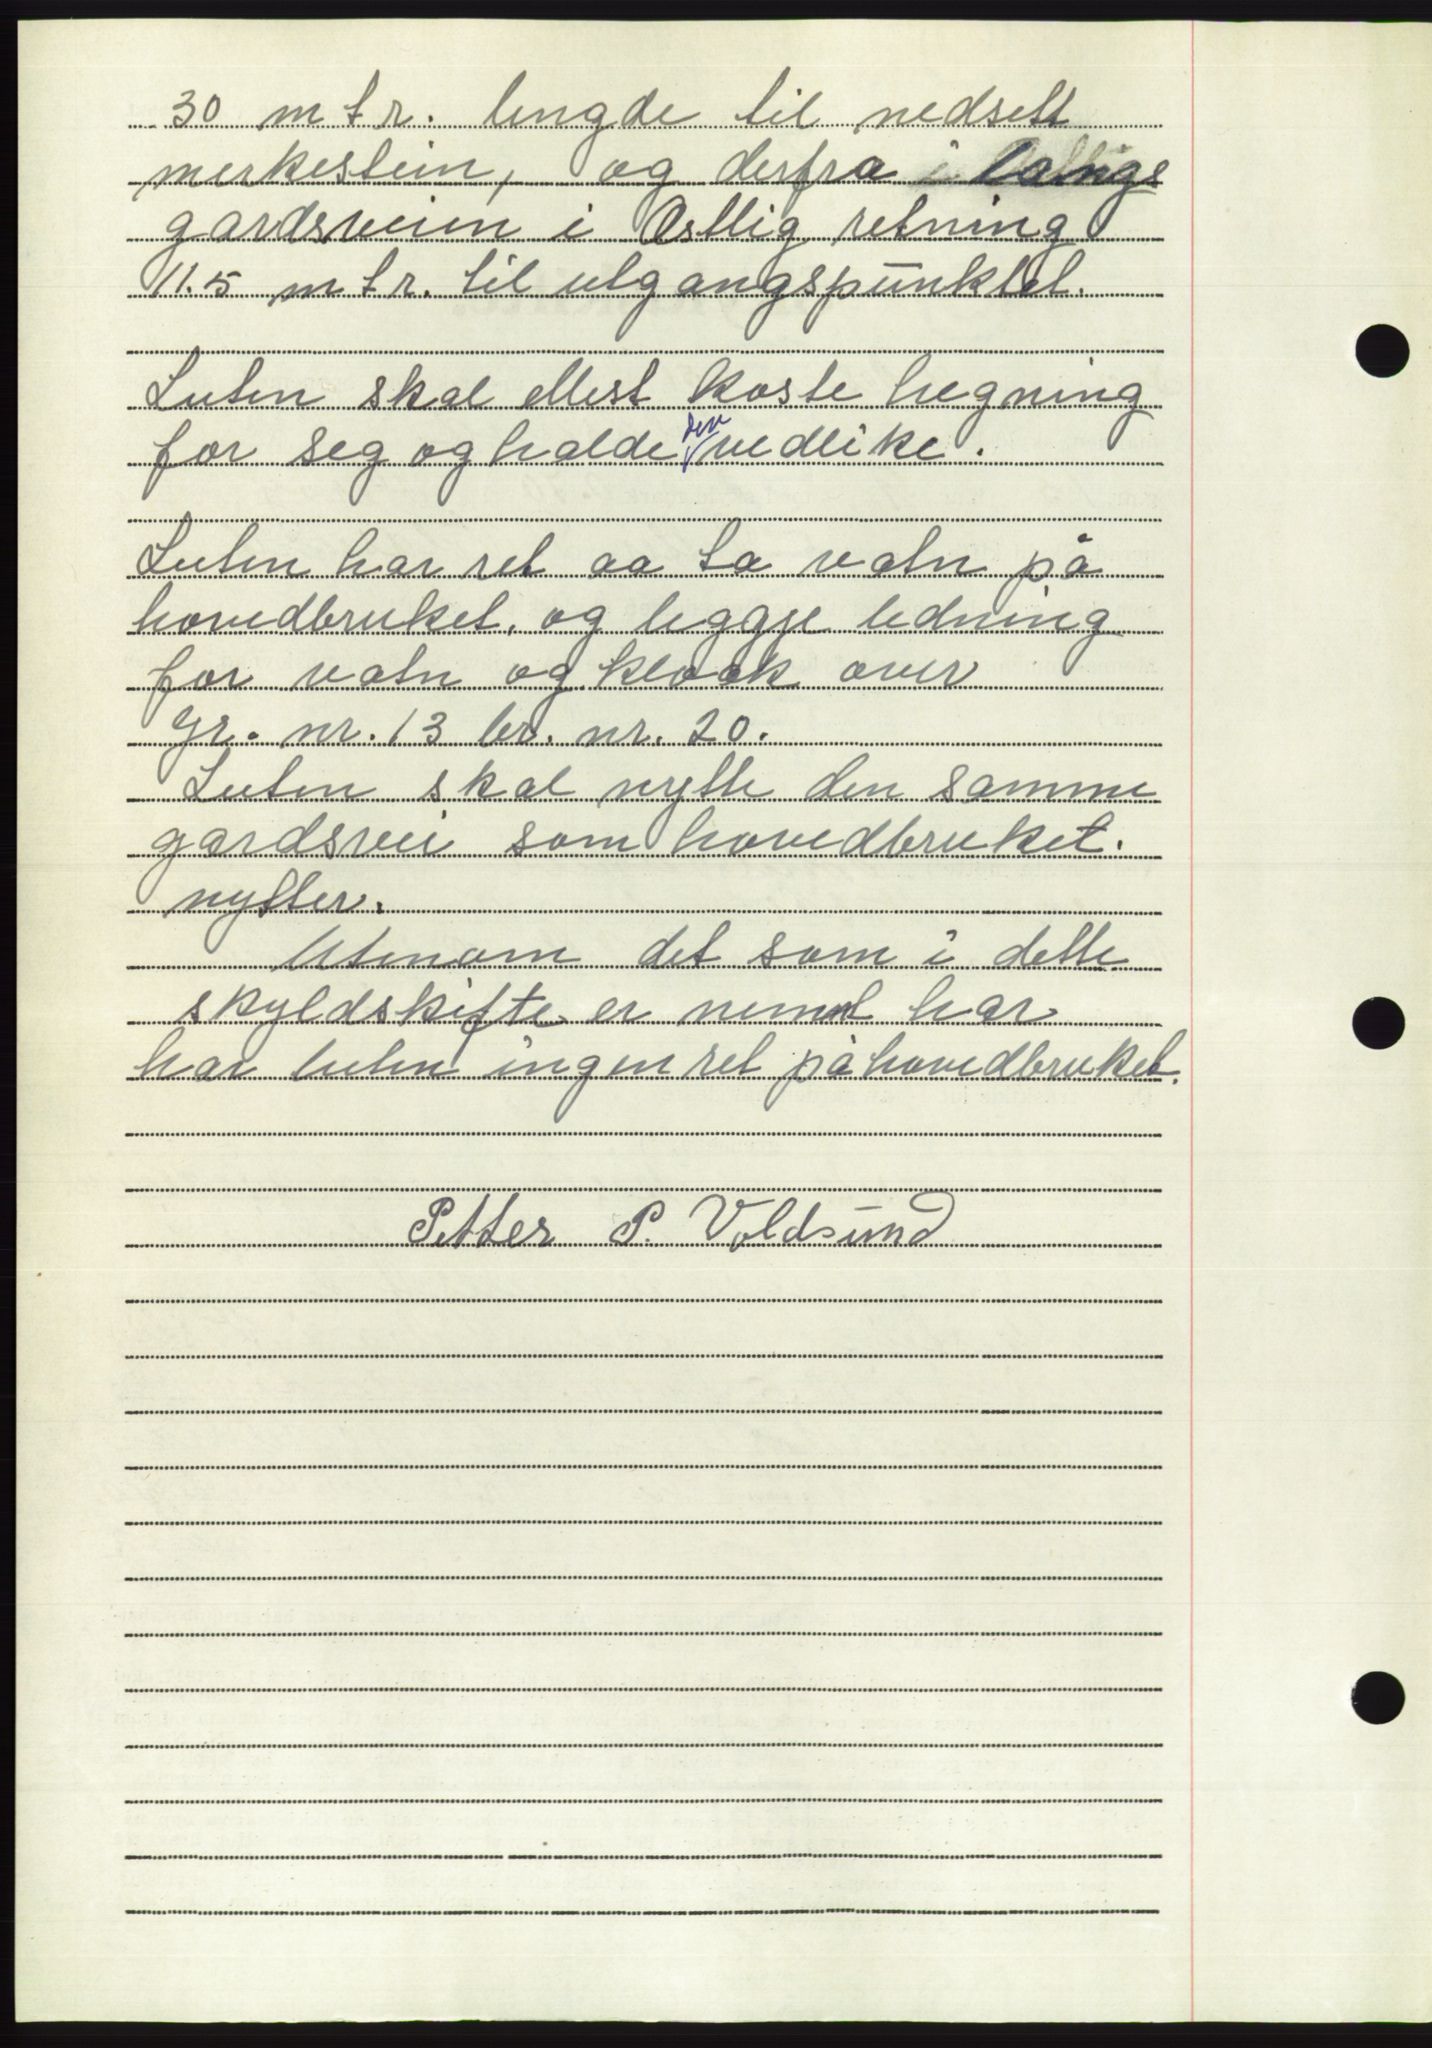 30 mtr. lengde til nedsett
merkestein, og derfra i langs
gardsveien i Østlig retning
11.5 mtr. til utgangspunktet.
Luten skal ellest koste hegning
for seg og halde den vedlike.
Luten har ret aa ta vatn på
hovedbruket. og leggje ledning
for vatn og kloak over
Gr. nr. 13 br. nr. 20.
Luten skal nytte den samme
gardsvei som hovedbruket.
nytter.
Utenom det som i dette
skyldskifte er nemnt har
har luten ingen ret på hovedbruket.
Petter P. Voldsund